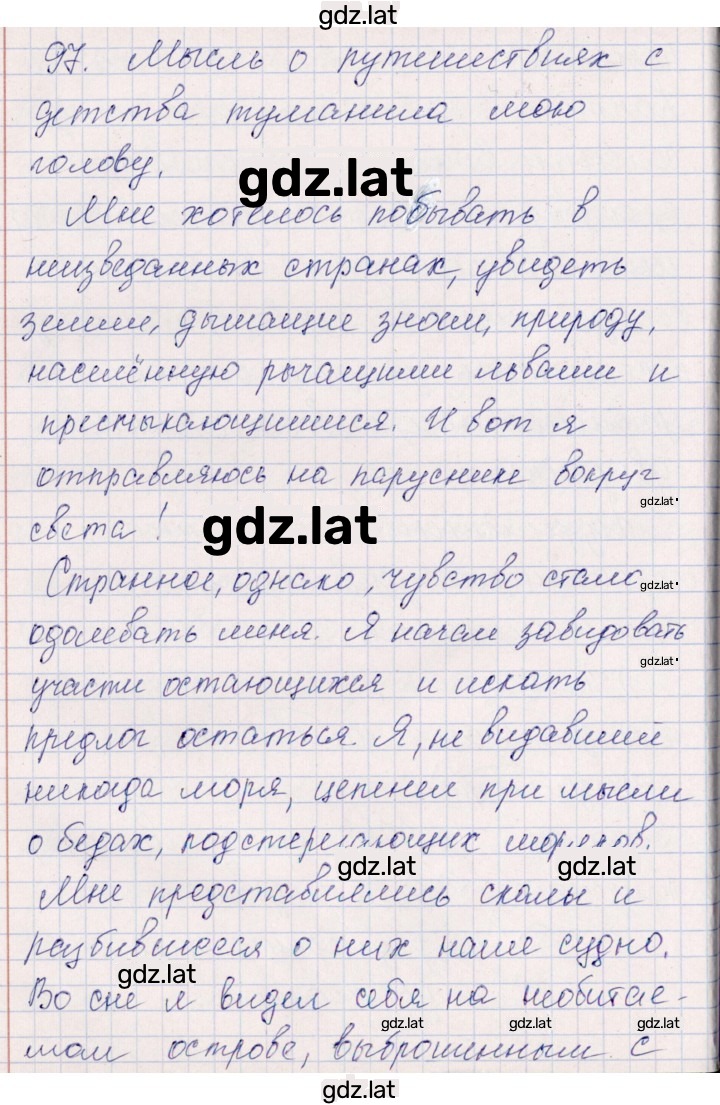 gdz.lat
97. Мысль о путешествиях с
детства туманила мою
голову.
gdz.lat
Мне хотелось побывать в
неизведанных странах, увидеть
земли, дышащие зноем, природу,
населённую рычащими львами и
пресмыкающимися. И вот я
отправляюсь на паруснике вокруг
gdz.lat
света!
gdz.lat
Странное, однако, чувство стало
gdz.lat
одолевать меня. Я начал завидовать
gdz.lat
участи остающихся и искать
предлог остаться. Я, не видавший
никогда моря, цепенел при мысли
о бедах, подстерегающих моряков.
gdz.lat gdz.lat
Мне представлялись скалы и
разбившееся о них наше судно.
gdz.lat
Во сне я видел себя на необитае-
gdz.lat gdz.lat gdz.lat
мом острове, выброшенным с
gdz.lat